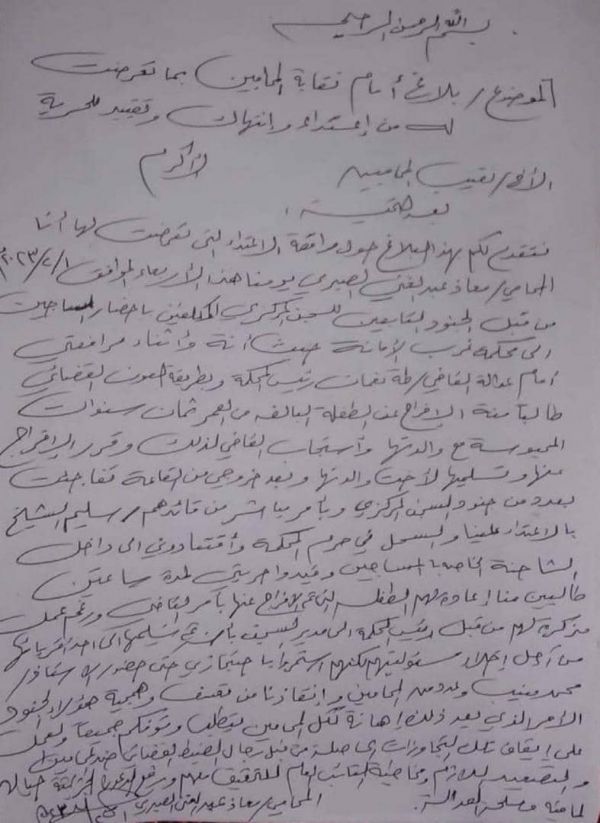 بسم الله الرحمن الرحيم
الموضوع/ بلاغ أمام نقابة المحامين بما تعرضت
له من إعتداء وإنتهاك وتقييد للحرية
الأخ/ نقيب المحاميين الأكرم
بعد التحية،
نتقدم لكم بهذا البلاغ حول واقعة الاعتداء التي تعرضت لها أنا
المحامي/ معاذ عبدالغني الصبري يومنا هذا الأربعاء الموافق
من قبل الجنود التابعين للسجن المركزي المكلفين باحضار المساجين
الى محكمة غرب الأمانة حيث أنه وأثناء مرافعتي
أمام عدالة القاضي/ طه نعمان رئيس المحكمة وبطريقة العون القضائي
طالباً منه الافراج عن الطفلة البالغه من العمر ثمان سنوات
المحبوسة مع والدتها وأستجاب القاضي لذلك وقرر الافراج
عنها وتسليمها لأخت والدتها وبعد خروجي من القاعة تفاجئت
بعدد من جنود السجن المركزي وبأمر مباشر من قائدهم/ سليم الشيخ
بالاعتداء علينا والسحل في حرم المحكمة وأقتادوني الى داخل
الشاحنة الخاصه بالمساجين وقيدوا حريتي لمدة ساعتين
طالبين منا إعادة لهم الطفله التي تم الافراج عنها بأمر القاضي ورغم عمل
مذكرة لهم من قبل رئيس المحكمة الى مدير السجن بأن تم تسليمها الى احد أقربائها
من أجل إخلاء مسئوليتهم لكنهم استمروا باحتجازي حتى حضور الاستاذ/
محمد منيب وعدد من المحامين وإنقاذنا من تعسف وهمجية هؤلاء الجنود
الأمر الذي يعد ذلك إهانة لكل المحامين يتطلب وقوفكم جميعاً والعمل
على إيقاف تلك التجاوزات الحاصلة من قبل رجال الضبط القضائي ضد المحامين
والتصعيد اللازم ومخاطبة النائب العام للتحقيق معهم ورفع الدعوى الجزائية حياله
لما فيه مصلحة العدالة. المحامي/ معاذ عبدالغني الصبري